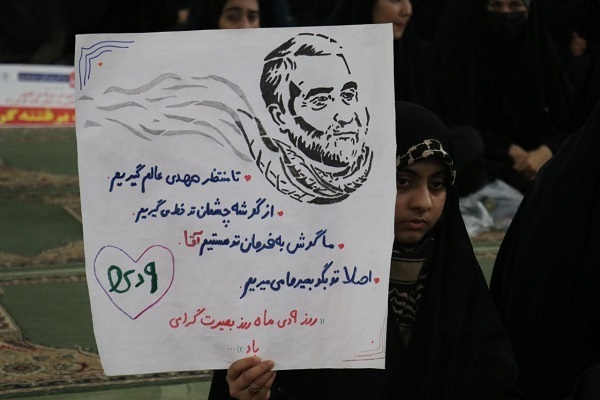 تا منتظر مهدی عالم گیریم.
از گوشه چشمان تو خط می گیریم.
ما گوش به فرمان تو هستیم آقا.
اصلا تو بگو بمیر ما می میریم.
۹ دی
«روز ۹ دی ماه روز بصیرت گرامی
باد»...
برفتنه گر